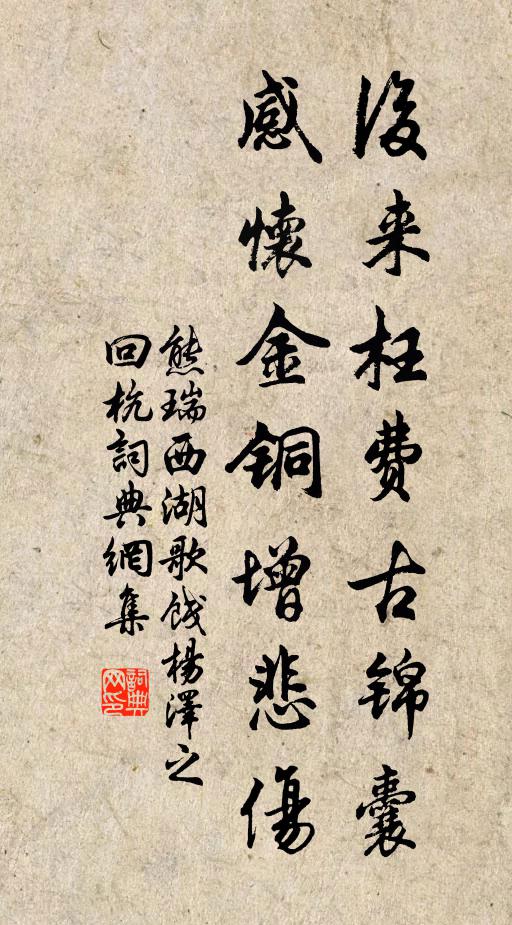 後来枉費古錦囊
感懷金銅增悲傷
熊瑞西湖歌餞楊澤之
回杭詞典網集
詞典网印